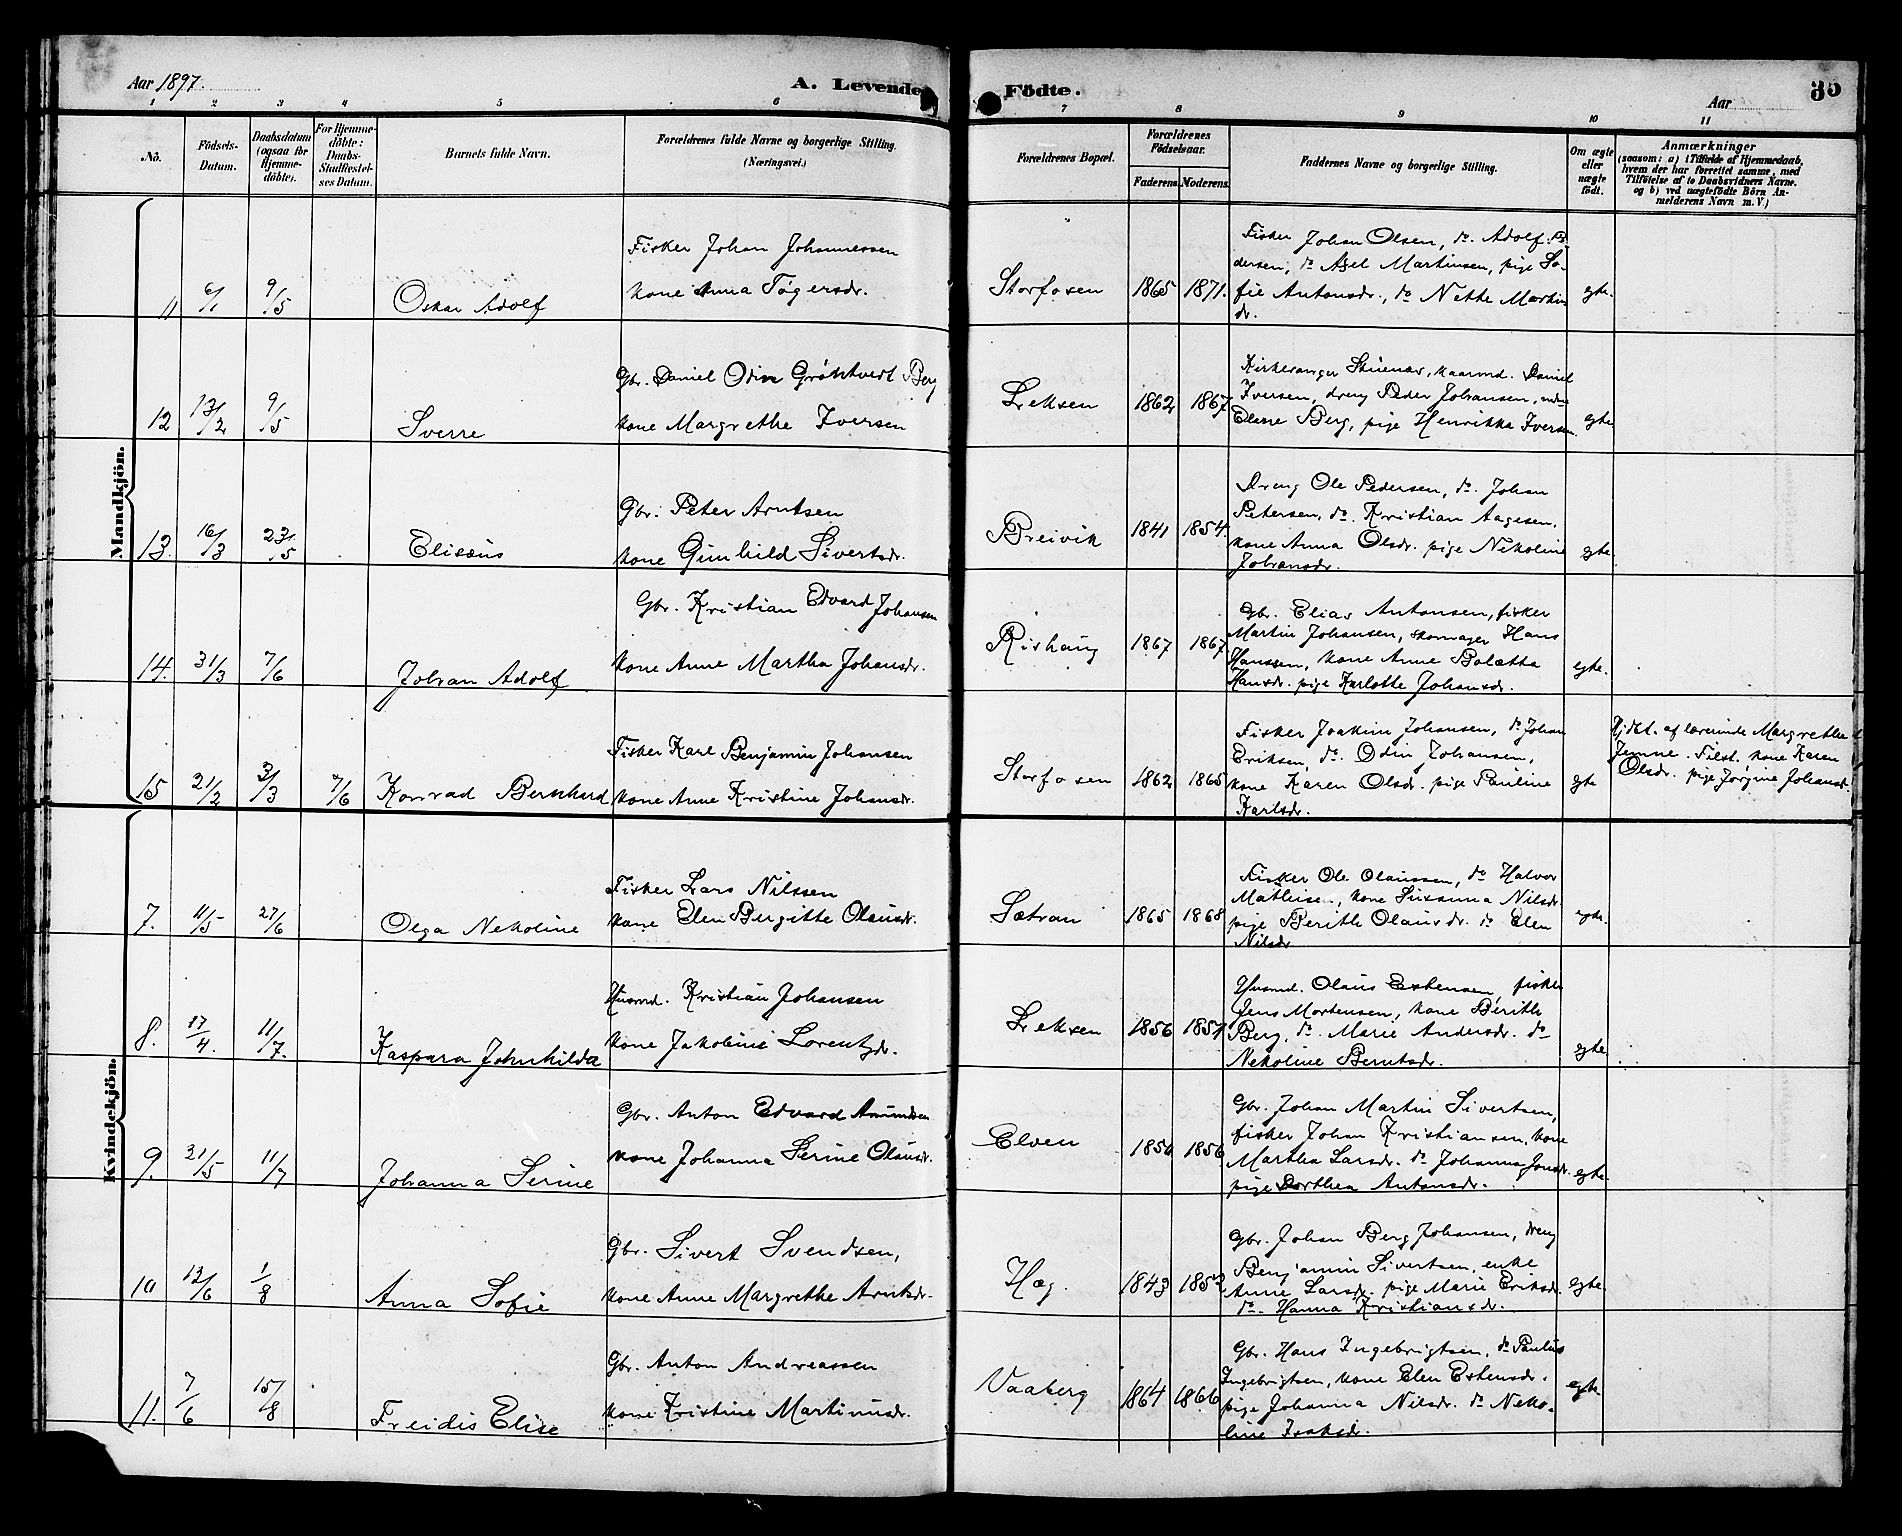 Aar 1897.
A. Levende Födte.
Aar
35
1 2 3 4 5 6 7 8 9 10 11
No.
Födsels-Datum.
Daabsdatum (ogsaa for Hjemme-döbte).
For Hjemme-döbte: Daabs-Stadfæstel-ses Datum.
Barnets fulde Navn.
Forældrenes fulde Navne og borgerlige Stilling. (Næringsvei.)
Forældrenes Bopæl.
Forældrenes Födselsaar.
Faderens. Moderens.
Faddernes Navne og borgerlige Stilling.
Om ægte eller uægte födt.
Anmærkninger
(saasom: a) i Tilfælde af Hjemmedaab, hvem der har forrettet samme, med Tilföielse af to Daabsvidners Navne. og b) ved uægtefödte Börn An-melderens Navn m. V.)
Mandkjön.
11 6/1 9/5 Oskar Adolf
Fisker Johan Johannessen
kone Anna Tøgersdr.
Storfosen 1865 1871.
Fisker Johan Olsen, do. Adolf Pe-
dersen, do Axel Martinsen, pige So-
fie Antonsdr., do Nette Martin
dr.
egte.
12 13/2 9/5 Sverre
Gbr. Daniel Odin Grøntvedt Berg
kone Margrethe Iversen
Leksen 1862 1867
Kirkesanger Stuenæs, kaarmd. Daniel
Iversen, dreng Peder Johansen,
Berg, pige Henrikka Iversen.
egte
13. 16/3 23/5 Elisæus
Gbr. Peter Arntsen
kone Gunhild Sivertsdr.
Breivik 1841 1854.
Dreng Ole Pedersen, do. Johan
Petersen, do. Kristian Aagesen.
kone Anna Olsdr. pige Nekoline
Johansdr.
egte
14. 31/3 7/6 Johan Adolf
Gbr. Kristian Edvard Johansen
kone Anne Martha Johansdr.
Rishaug 1867 1867
Gbr. Elias Antonsen, fisker
Martin Johansen, skomager Hans
Hanssen, kone Anne Bolætta
Hansdr. pige Karlotte Johansdr.
egte.
15 21/2 3/3 7/6 Konrad Bernhard
Fisker Karl Benjamin Johansen
kone Anne Kristine Johansdr.
Storfosen 1862 1865
Fisker Joakim Johansen, do Johan
Eriksen, do. Odin Johansen,
kone Karen Olsdr. pige Pauline
Karlsdr.
egte
Hjdbt. af lærerinde Margrethe
Tilst. kone Karen
Olsdr. pige Jørgine Johansdr.
Kvindekjön.
7. 11/5 27/6 Olga Nekoline
Fisker Lars Nilssen
kone Elen Bergitte Olausdr.
Sætran 1865 1868
Fisker Ole Olaussen, do Halvor
Mathise., kone Susanna Nilsdr
pige Berith Olausdr. do Elen
Nilsdr
egte.
8. 17/4. 11/7. Kaspara Johnhilda
Husmd. Kristian Johansen
kone Jakobine Lorentzdr.
Leksen 1856 1857
Husmd. Olaus Estensen, fisker
Jens Mortensen, kone Berith
Berg, do. Marie Andersdr. do
Nekoline Berntsdr.
egte
9. 21/5 11/7 Johanna Serine
Gbr. Anton Edvard Amundsen
kone Johanna Serine Olausdr.
Elven 1850 1856
Gbr. Johan Martin Sivertsen,
fisker Johan Kristiansen, kone
Martha Larsdr. do Johanna Jonsdr.
pige Dorthea Antonsdr.
egte.
10 12/6 1/8 Anna Sofie
Gbr. Sivert Svendsen,
kone Anne Margrethe Arntsdr.
Hæg. 1843 1853
Gbr. Johan Berg Johansen, dreng
Benjamin Sivertsen, enke
Anne Larsdr. pige Marie Eriksdr.
do. Hanna Kristiansdr.
egte.
11. 7/6 15/8 Freidis Elise
Gbr. Anton Andreassen
kone Kristine Martinusdr.
Vaaberg 1864 1866
Gbr. Hans Ingebrigtsen, do Paulus
Ingebrigtsen, kone Elen Estensdr.
pige Johanna Nilsdr. do Neko-
line Isaksdr.
egte